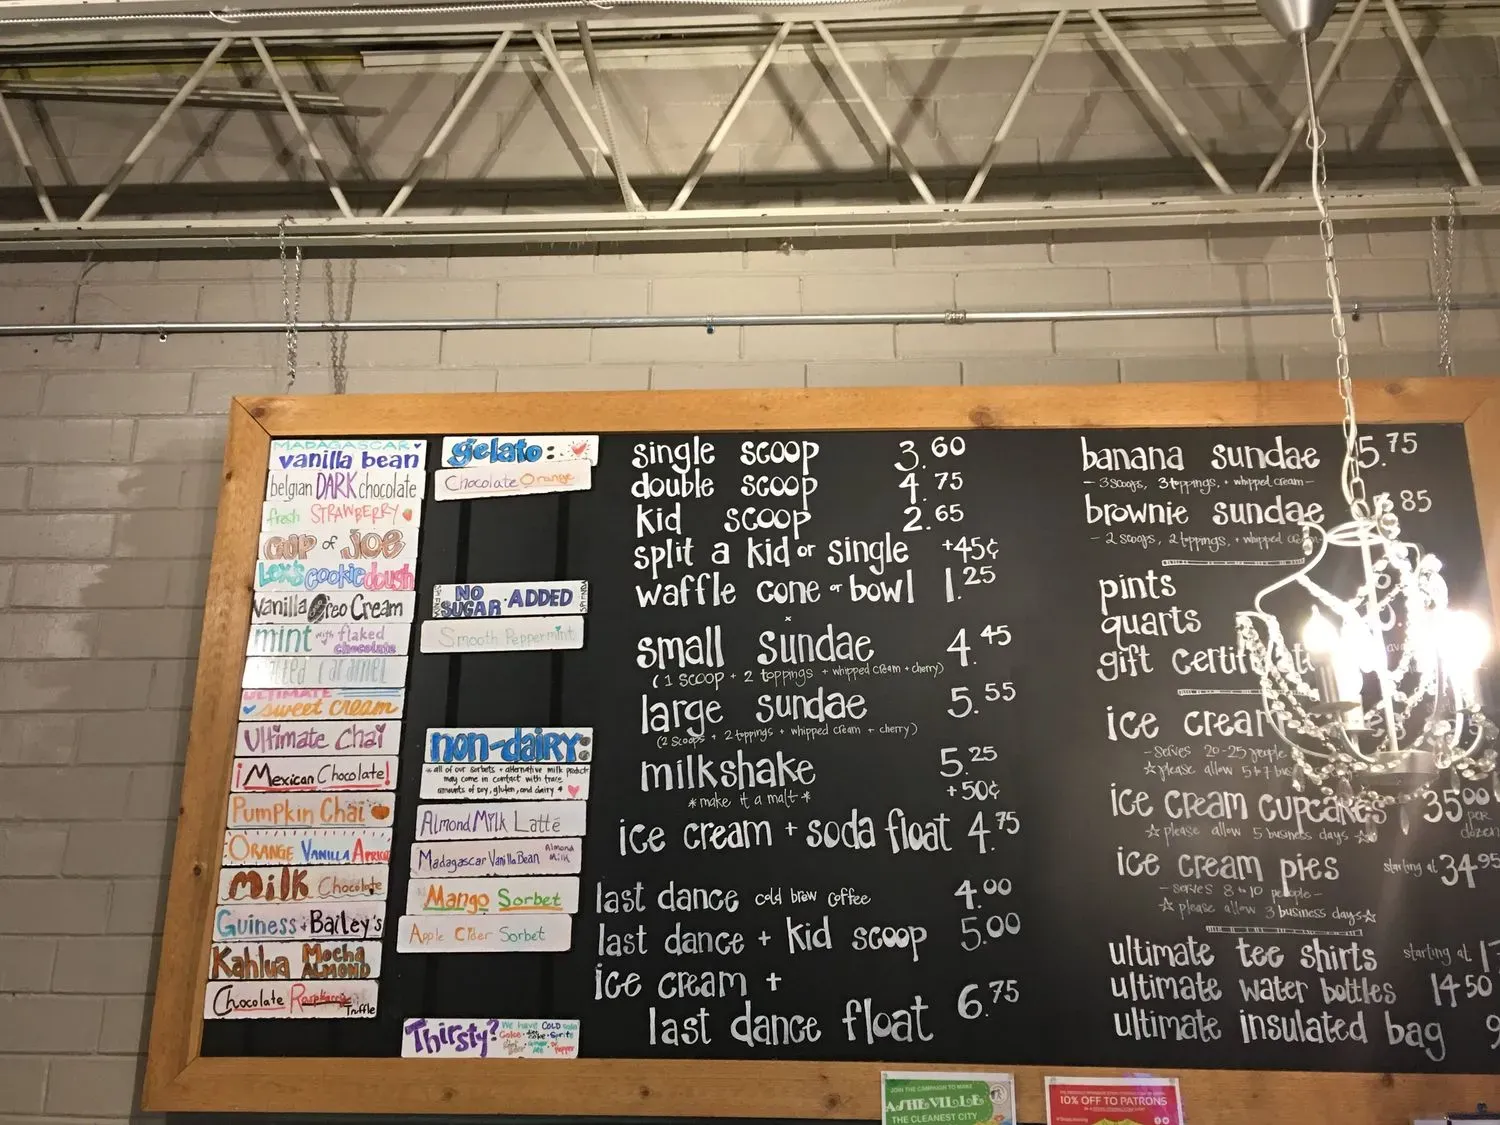 MADAGASCAR
vanilla bean
belgian DARK chocolate
fresh STRAWBERRY
CUP of JOE
Lex's cookie dough
Vanilla Oreo Cream
mint with flaked
chocolate
Salted Caramel
ULTIMATE
sweet cream
Ultimate Chai
¡Mexican Chocolate!
Pumpkin Chai
ORANGE VANILLA APRICOT
Milk Chocolate
Guiness + Bailey's
Kahlua Mocha
ALMOND
Chocolate Raspberry
Truffle
gelato:
Chocolate Orange
NO
SUGAR·ADDED
Smooth Peppermint
non-dairy:
* all of our sorbets + alternative milk products
may come in contact with trace
amounts of soy, gluten, and dairy *
Almond Milk Latte
Madagascar Vanilla Bean Almond
Milk
Mango Sorbet
Apple Cider Sorbet
Thirsty? We have COLD
single scoop 3.60
double scoop 4.75
kid scoop 2.65
split a kid or single +45¢
waffle cone or bowl 1.25
small sundae 4.45
(1 scoop + 2 toppings + whipped cream + cherry)
large sundae 5.55
(2 scoops + 2 toppings + whipped cream + cherry)
milkshake 5.25
*make it a malt* +50¢
ice cream + soda float 4.75
last dance cold brew coffee 4.00
last dance + kid scoop 5.00
ice cream +
last dance float 6.75
banana sundae 5.75
- 3 scoops, 3 toppings, + whipped cream -
brownie sundae 85
- 2 scoops, 2 toppings, + whipped cream
pints
quarts
gift
ice
- serves 20-25 people
☆ please allow 5 to 7
ice cream cupcakes 35.00
per
dozen
☆ please allow 5 business days ☆
ice cream pies starting at 34.95
- serves 8 to 10 people -
☆ please allow 3 business days ☆
ultimate tee shirts starting at
ultimate water bottles 14.50
ultimate insulated bag
JOIN THE CAMPAIGN TO MAKE
ASHEVILLE
THE CLEANEST CITY
10% OFF TO PATRONS